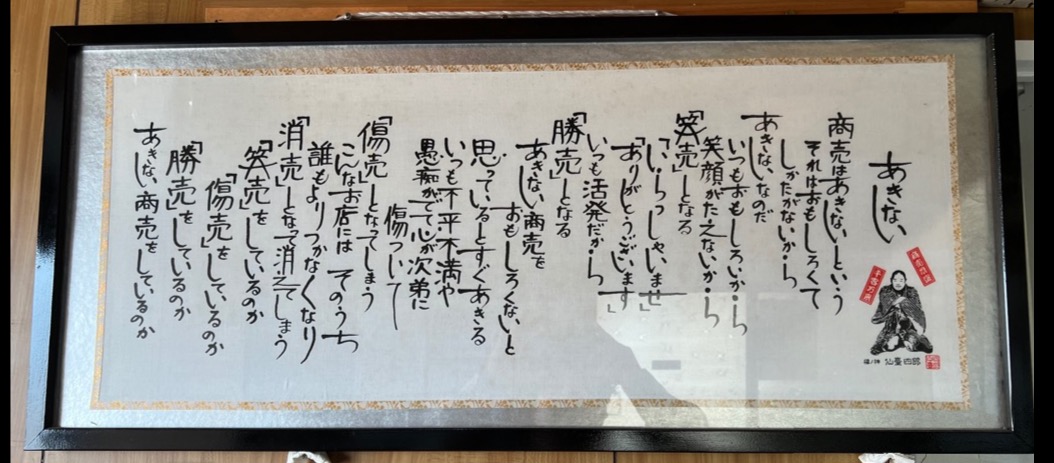 あきない
商売はあきないという
それはおもしろくて
しかたがないから
あきないなのだ
いつもおもしろいから
笑顔がたえないから
「笑売」となる
「いらっしゃいませ」
「ありがとうございます」
いつも活発だから
「勝売」となる
あきない商売を
おもしろくないと
思っているとすぐあきる
いつも不平不満や
愚痴がでて心が次第に
傷ついて
「傷売」となってしまう
こんなお店には そのうち
誰もよりつかなくなり
「消売」となって消えてしまう
「笑売」をしているのか
「傷売」をしているのか
「勝売」をしているのか
あきない商売をしているのか
千客万来
福ノ神 仙臺四郎